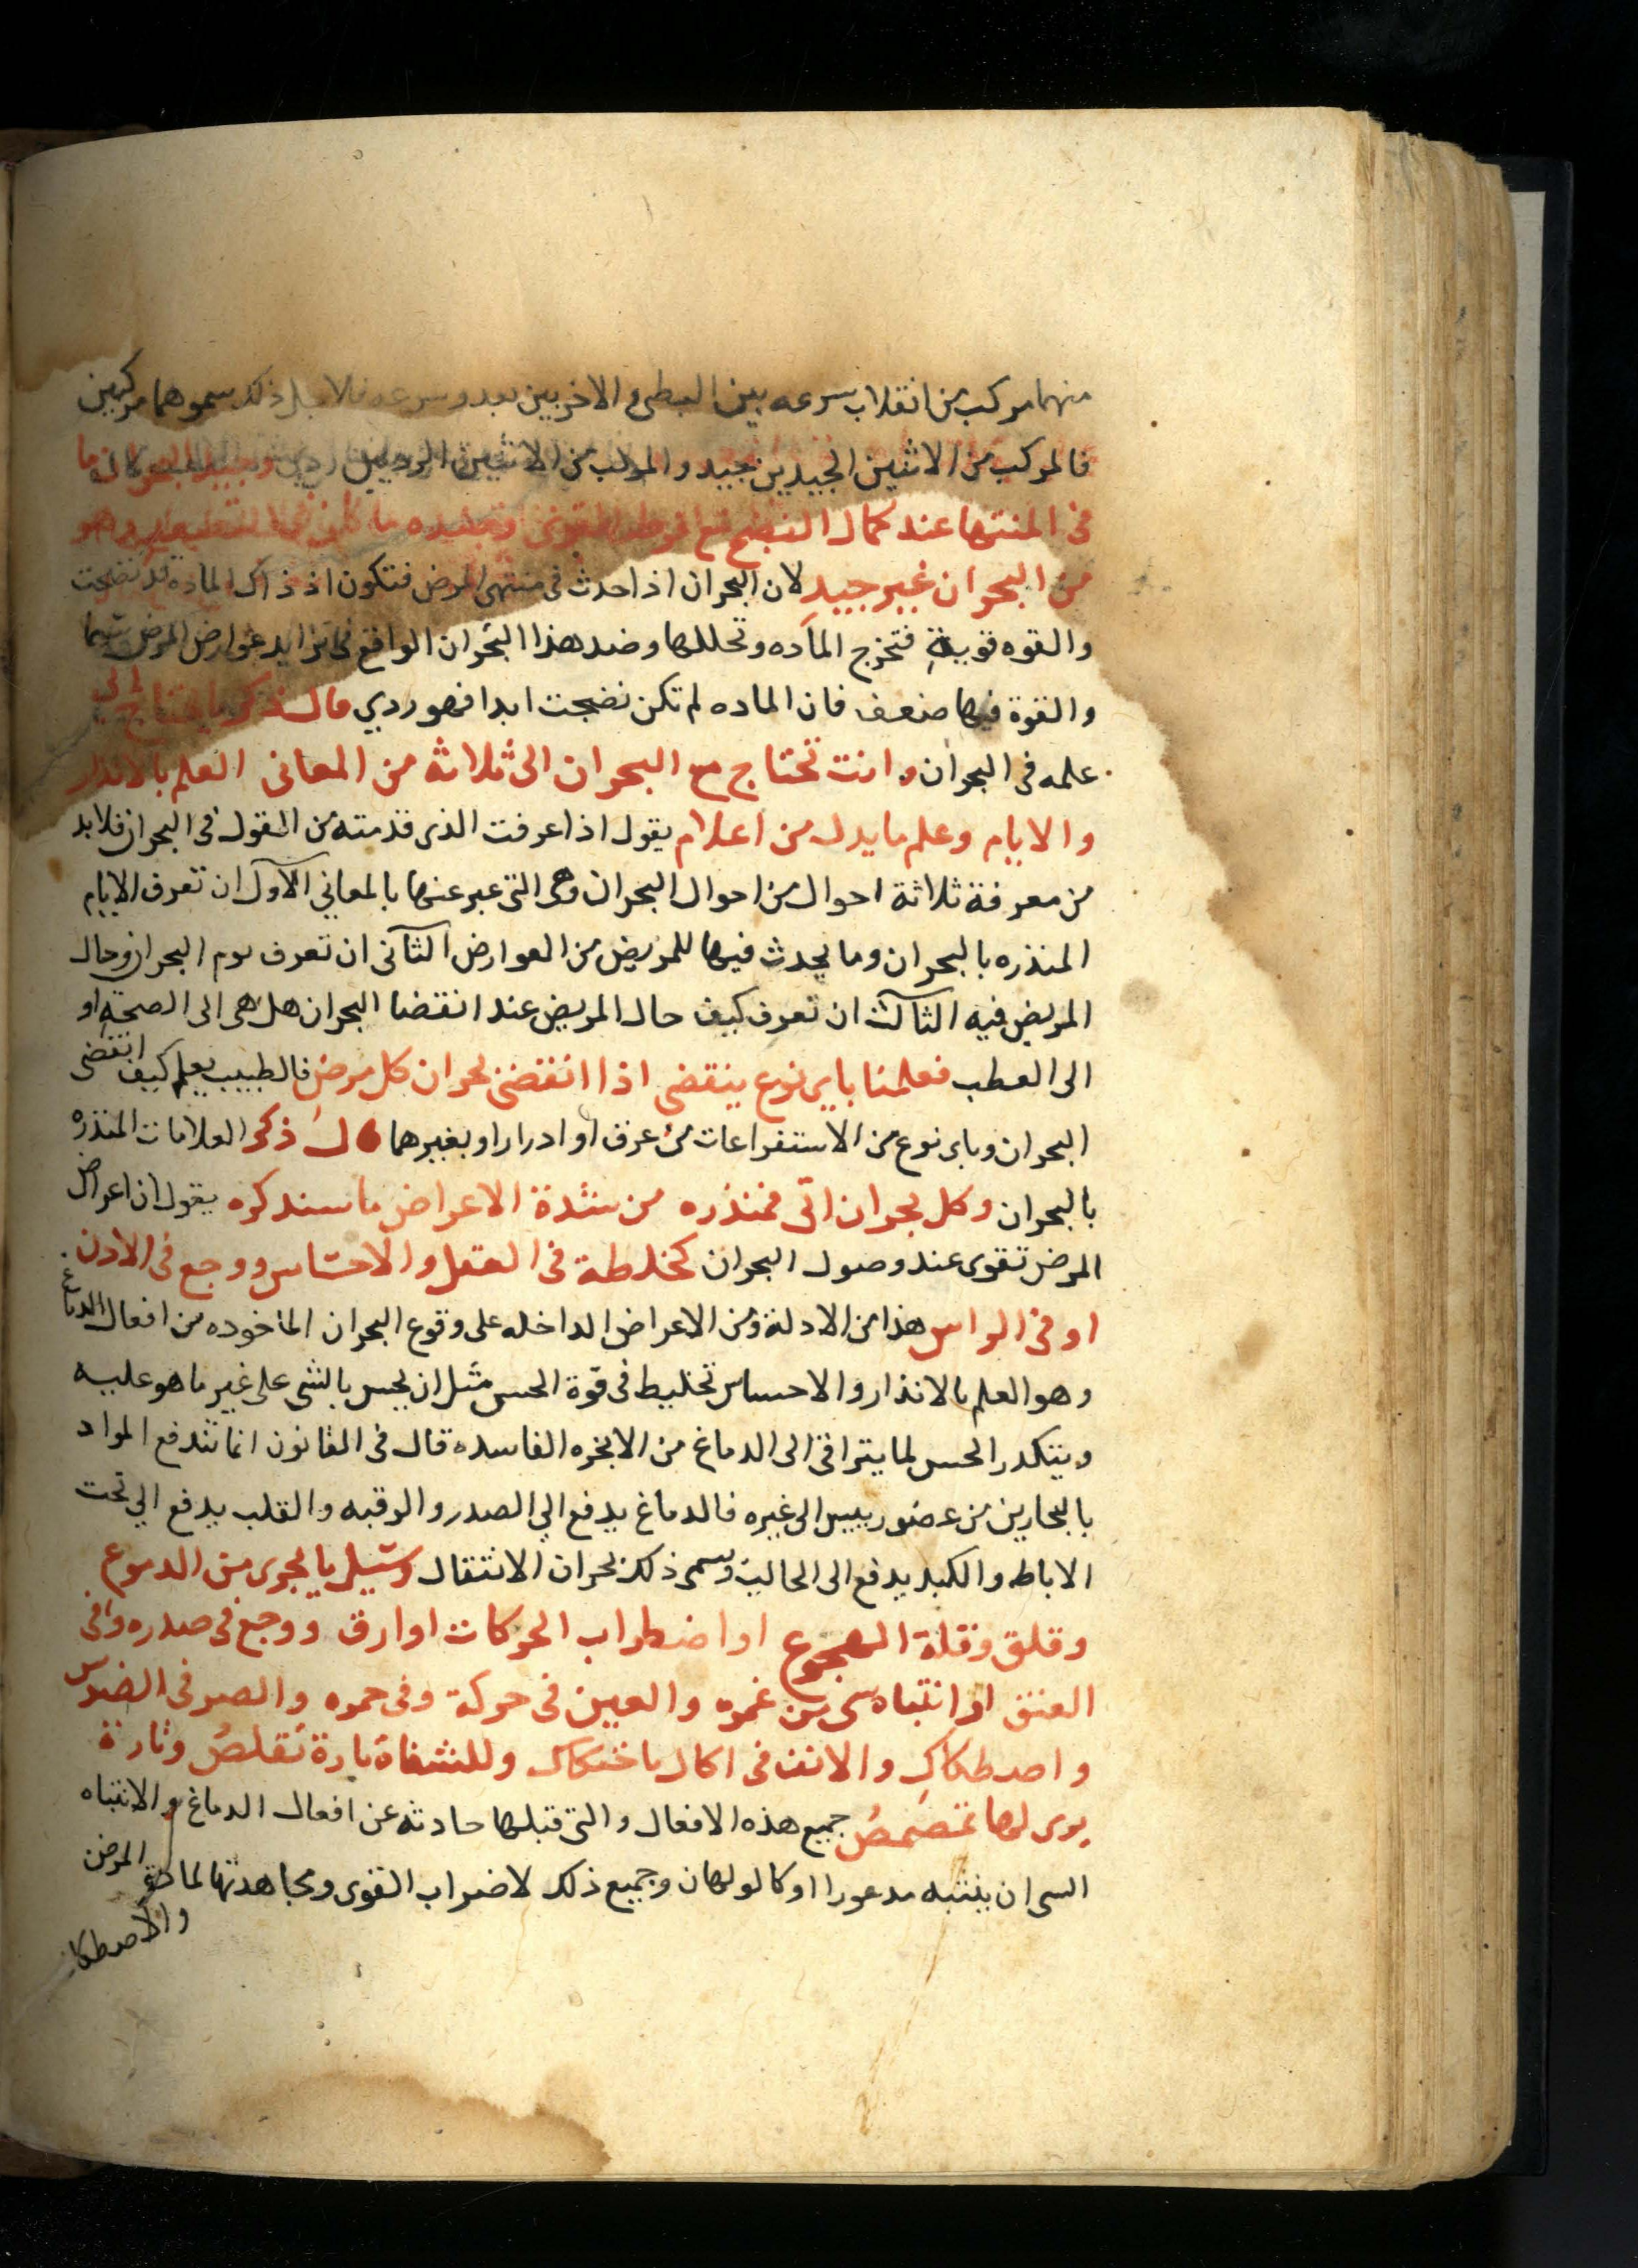 منهما مركب من انقلاب سرعه بين البطي والاخر بين سموهما مركبين
فالمركب من الاثنين الجيدين جيد والمركب من الاثنين الرديين ردي
في المنتها عند كمال النضج مع وهو
من البحران غير جيد لان البحران اذا حدث في منتهى المرض فتكون اذ ذاك الماده قد نضجت
والقوه قوية فتخرج الماده وتحللها وضد هذا البحران الواقع في تزايد عوارض المرض
والقوة فيها ضعف فان الماده لم تكن نضجت ابدا فهو ردي قال ذكر ما يحتاج الي
علمه في البحران وانت تحتاج مع البحران الى ثلاثة من المعاني العلم بالانذار
والايام وعلم ما يدل من اعلام يقول اذا عرفت الذي قدمته من القول في البحران فلابد
من معرفة ثلاثة احوال من احوال البحران وهى التي عبر عنها بالمعاني الاول ان تعرف الايام
المنذره بالبحران وما يحدث فيها للمريض من العوارض الثاني ان تعرف يوم البحران وحال
المريض فيه الثالث ان تعرف كيف حال المريض عند انقضا البحران هل هى الى الصحة او
الى العطب فعلمنا باي نوع ينقضي اذا انقضى بحران كل مرض فالطبيب يعلم كيف انقضى
البحران وباى نوع من الاستفراعات من عرق او ادرار او بغيرهما قال ذكر العلامات المنذره
بالبحران وكل بحران اتى فمنذره من شدة الاعراض ما سنذكره يقول ان اعراض
المرض تقوى عند وصول البحران كخلطة في العقل والاحساس ووجع في الاذن
او في الراس هذا من الادلة ومن الاعراض الداخله على وقوع البحران الماخوده من افعال الدماغ
وهو العلم بالانذار والاحساس تخليط في قوة الحس مثل ان يحس بالشي على غير ما هو عليه
ويتكدر الحس لما يتراقى الى الدماغ من الابخره الفاسده قال في القانون انما تندفع المواد
بالبحارين من عضو رييس الى غيره فالدماغ يدفع الي الصدر والرقبه والقلب يدفع الي تحت
الاباط والكبد يدفع الى الحالبين وسمى ذلك بحران الانتقال وسيل يالجرى من الدموع
وقلق وقلة الهجوع او اضطراب الحركات او ارق ووجع في صدره وفي
العنق او انتباه سى من غمره والعين في حركة وفي حمره والصر في الضرس
واصطكاك والانف في اكال باختكاك وللشفاة تارة تقلص وتارة
يرى لها تمصمص جميع هذه الافعال والتى قبلها حادثه عن افعال الدماغ والانتباه
السى ان ينتبه مدعورا او كالولهان وجميع ذلك لاضراب القوى ومجاهدتها لمادة المرض
والاصطكاك